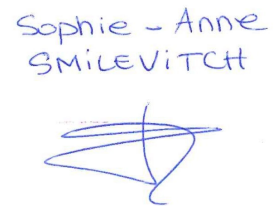 Sophie - Anne
SMiLEViTCH